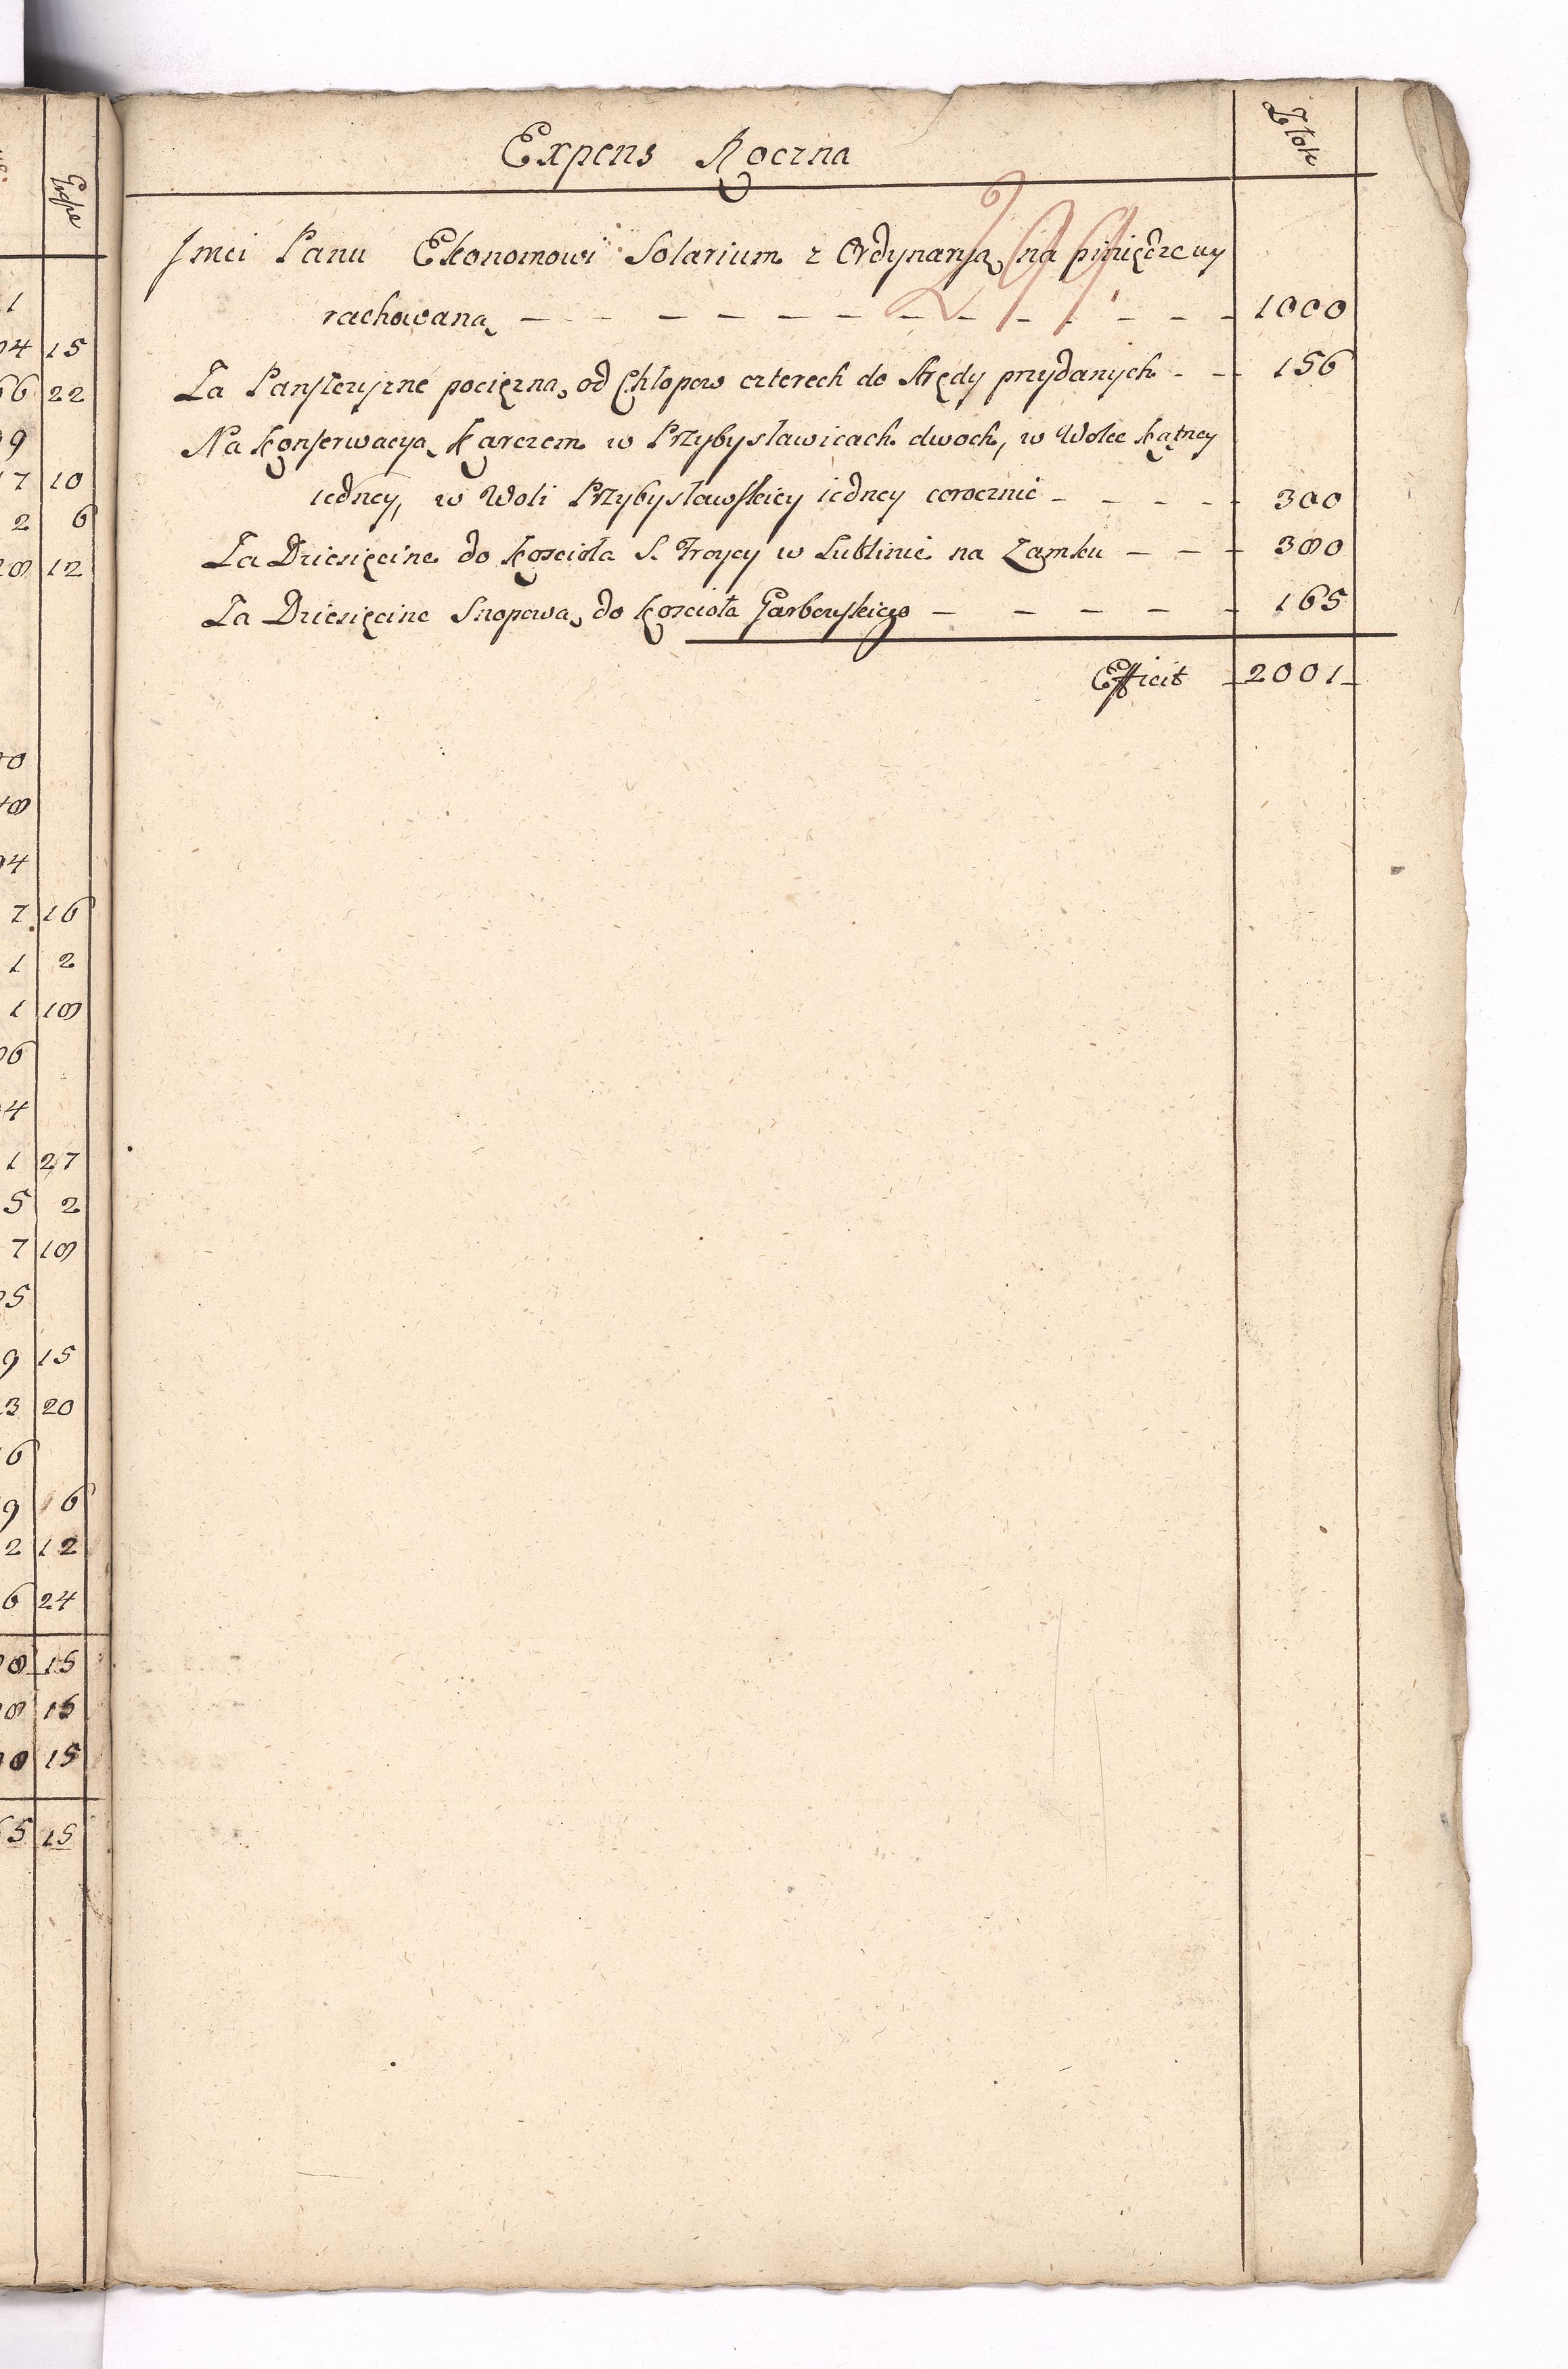 1
4 15
6 22
9
7 10
2 6
8 12
0
8
4
7 16
1 2
1 18
6
4
1 27
5 2
7 18
5
9 15
3 20
6
9 6
2 12
6 24
8 15
8 15
0 15
5 15
Expens Roczna
Złote
299
Jmci Panu Ekonomowi Solarium z Ordynaryą na pinięzcwy
rachowaną — — — — — — — — — — — — 1000
Za Pansczyzne pocięzną od Chłopow czterech do Kredy przydanych - - 156
Na Konserwacyą Karczem w Przybysławicach dwoch, w Wolce Kątney
iedney, w Woli Przybysławskiey iedney corocznie - - - - 300
Za Dziesięcine do Koscioła S. Troycy w Lublinie na Zamku — — - 380
Za Dziesięcine Snopową do Koscioła Garbowskiego — — — — - 165
Efficit - 2001 -